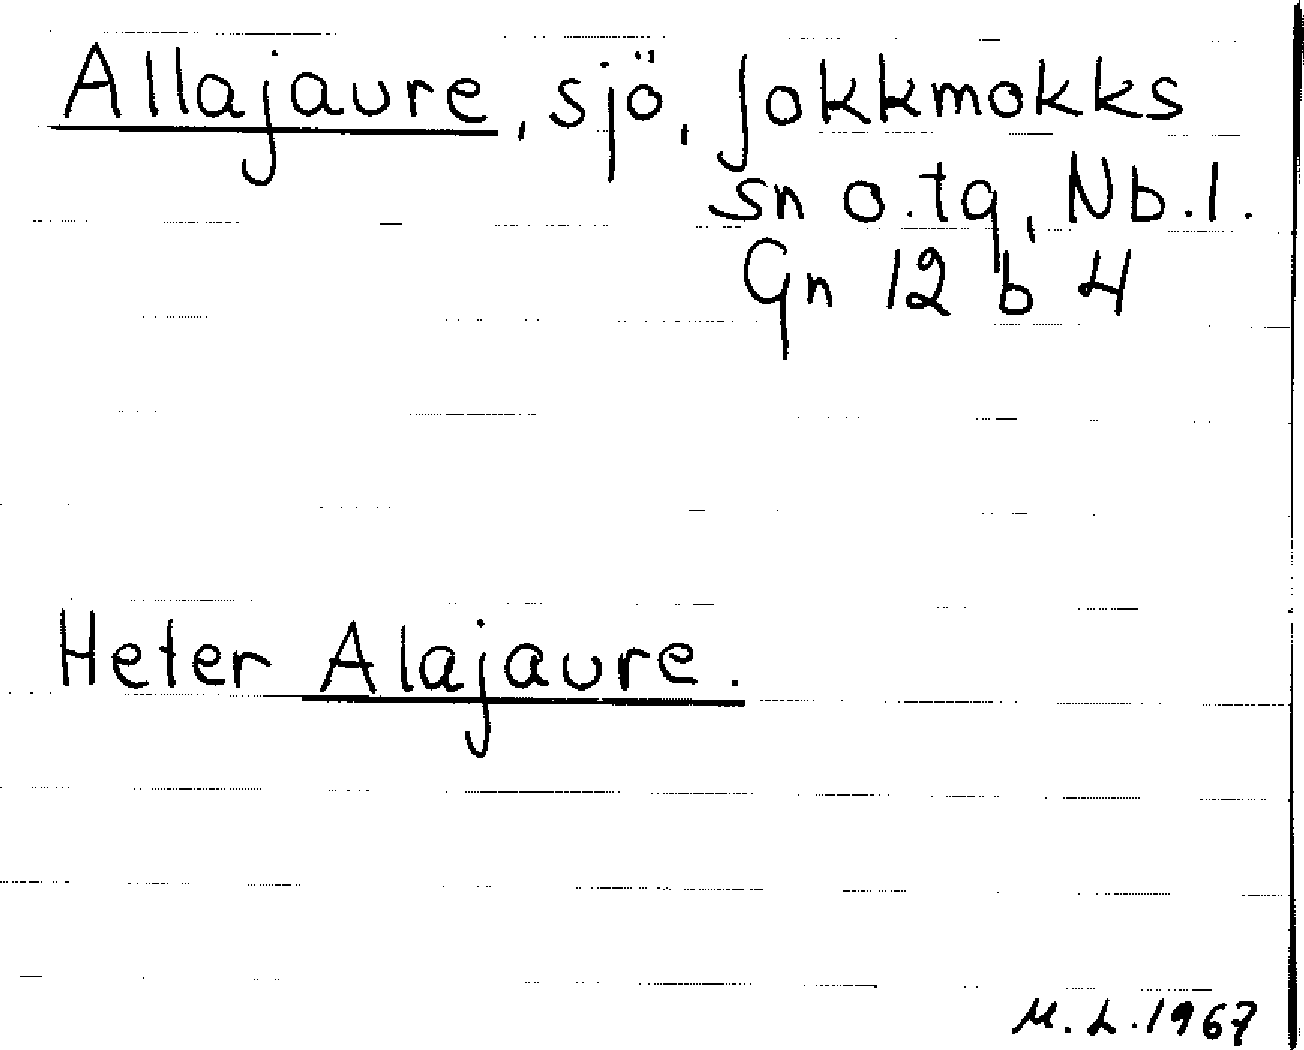 Allajaure, sjö, Jokkmokks
sn o. tg, Nb. l.
Gn 12 b 4
Heter Alajaure.
M. L. 1967